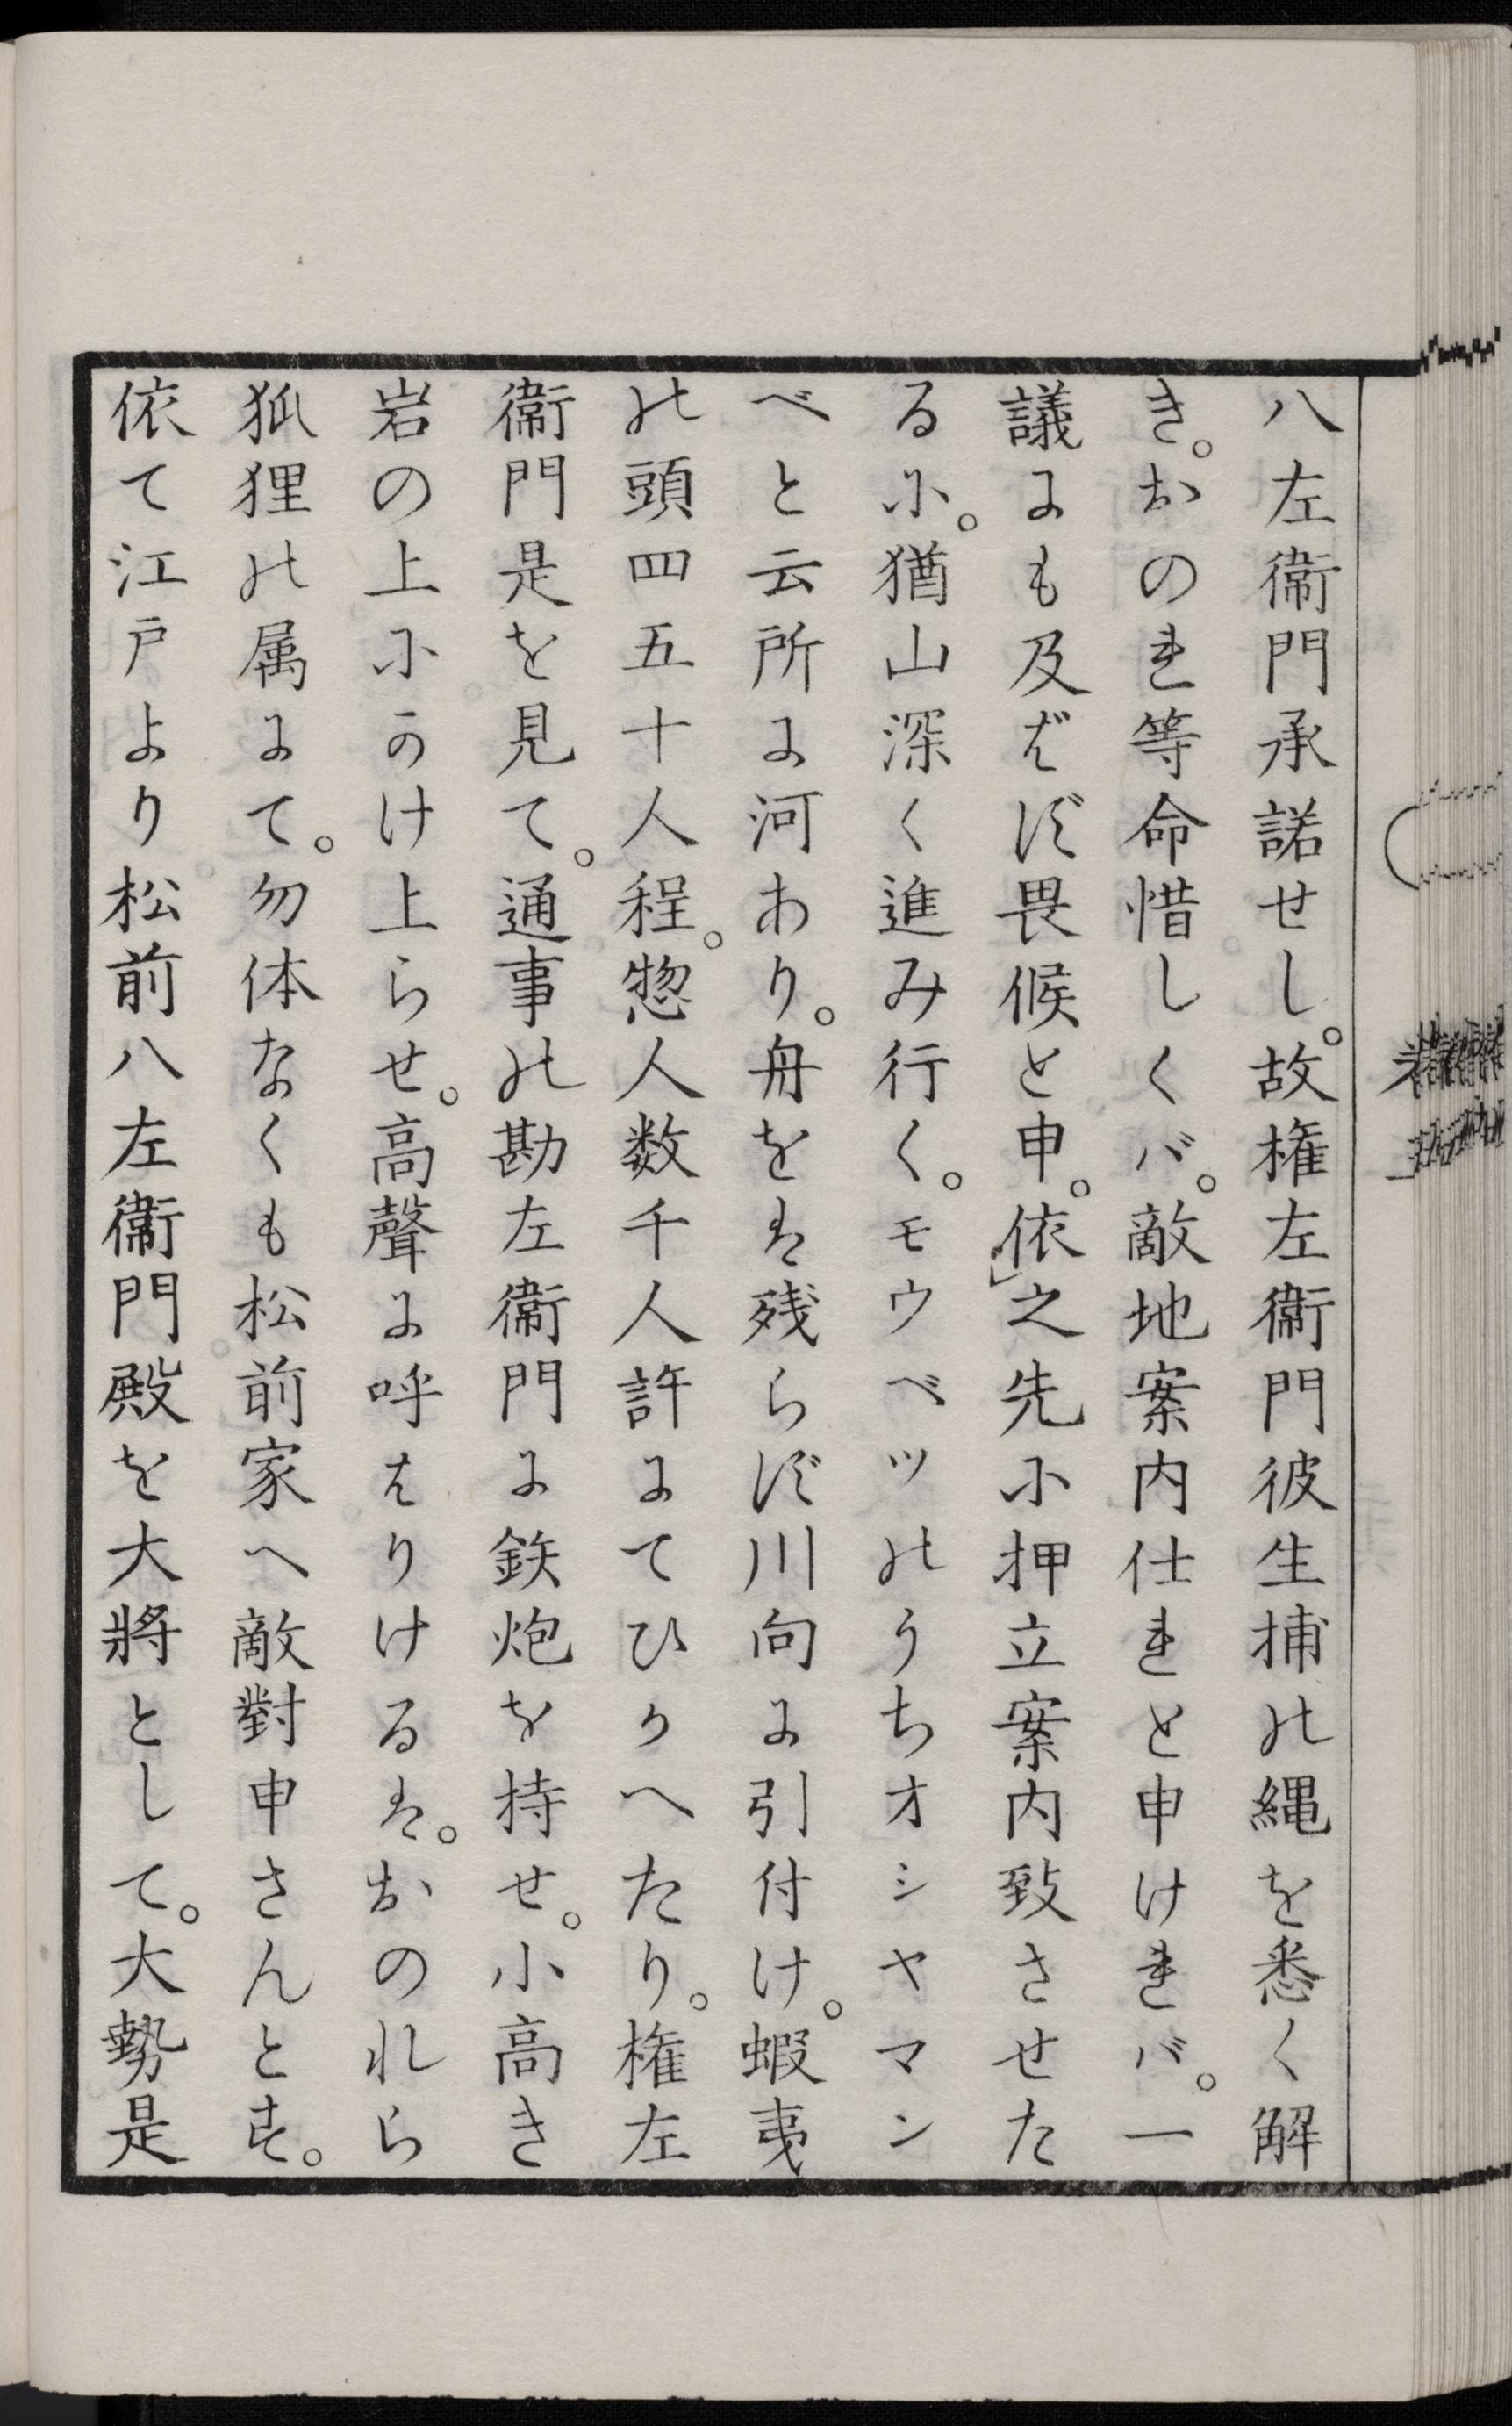 八左衞門承諾せし。故権左衞門彼生捕の縄を悉く解
き。おのれ等命惜しくバ。敵地案内仕れと申けれバ。一
議にも及ばず畏候と申。依之先に押立案内致させた
るに。猶山深く進み行く。モウベツのうちオシヤマン
べと云所に河あり。舟をは残らず川向に引付け。蝦夷
の頭四五十人程。惣人数千人許にてひかへたり。権左
衞門是を見て。通事の勘左衞門に鉄炮を持せ。小高き
岩の上にかけ上らせ。高聲に呼はりけるは。おのれら
狐狸の属にて。勿体なくも松前家へ敵對申さんとす。
依て江戸より松前八左衞門殿を大將として。大勢是